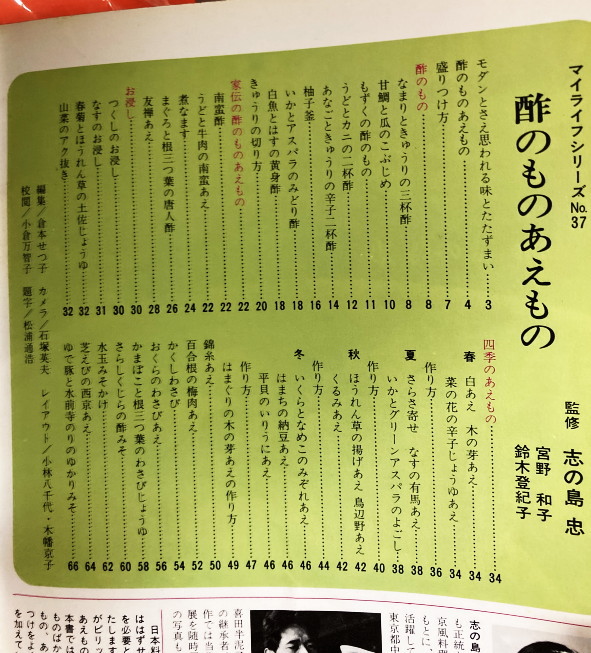 マイライフシリーズNo.37
酢のものあえもの
監修 志の島 忠
宮野 和子
鈴木登紀子
モダンとさえ思われる味とたたずまい……3
酢のものあえもの……4
盛りつけ方……7
酢のもの……8
なまりときゅうりの三杯酢……8
甘鯛と瓜のこぶじめ……10
もずくの酢のもの……11
うどとカニの二杯酢……12
あなごときゅうりの辛子二杯酢……14
柚子釜……16
いかとアスパラのみどり酢……18
白魚とはすの黄身酢……18
きゅうりの切り方……20
家伝の酢のものあえもの……22
南蛮酢……22
うどと牛肉の南蛮あえ……22
煮なます……24
まぐろと根三つ葉の唐人酢……26
友禅あえ……28
お浸し……30
つくしのお浸し……30
なすのお浸し……31
春菊とほうれん草の土佐じょうゆ……32
山菜のアク抜き……32
四季のあえもの……34
春 白あえ 木の芽あえ……34
菜の花の辛子じょうゆあえ……34
作り方……36
夏 さらさ寄せ なすの有馬あえ……38
いかとグリーンアスパラのよごし……38
作り方……40
秋 ほうれん草の揚げあえ 鳥辺野あえ……42
くるみあえ……42
作り方……44
冬 いくらとなめこのみぞれあえ……46
はまちの納豆あえ……46
平貝のいりうにあえ……46
作り方……47
はまぐりの木の芽あえの作り方……49
錦糸あえ……50
百合根の梅肉あえ……52
かくしわさび……54
おくらのわさびあえ……56
かまぼこと根三つ葉のわさびじょうゆ……58
さらしくじらの酢みそ……60
水玉みそかけ……62
芝えびの西京あえ……64
ゆで豚と水前寺のりのゆかりみそ……66
編集／倉本せつ子 カメラ／石塚英夫 レイアウト／小林八千代・木幡京子
校閲／小倉万智子 題字／松浦通浩
志の島
も正統
京風料理
もとに、
活躍して
東京都中
喜田半泥
の継承者
作では当
展を随時
の写真も
日本料
はずせ
を必要と
たします
がピリッ
あえもの
本書では
ものばか
もの、あ
つけをよ
を加えて